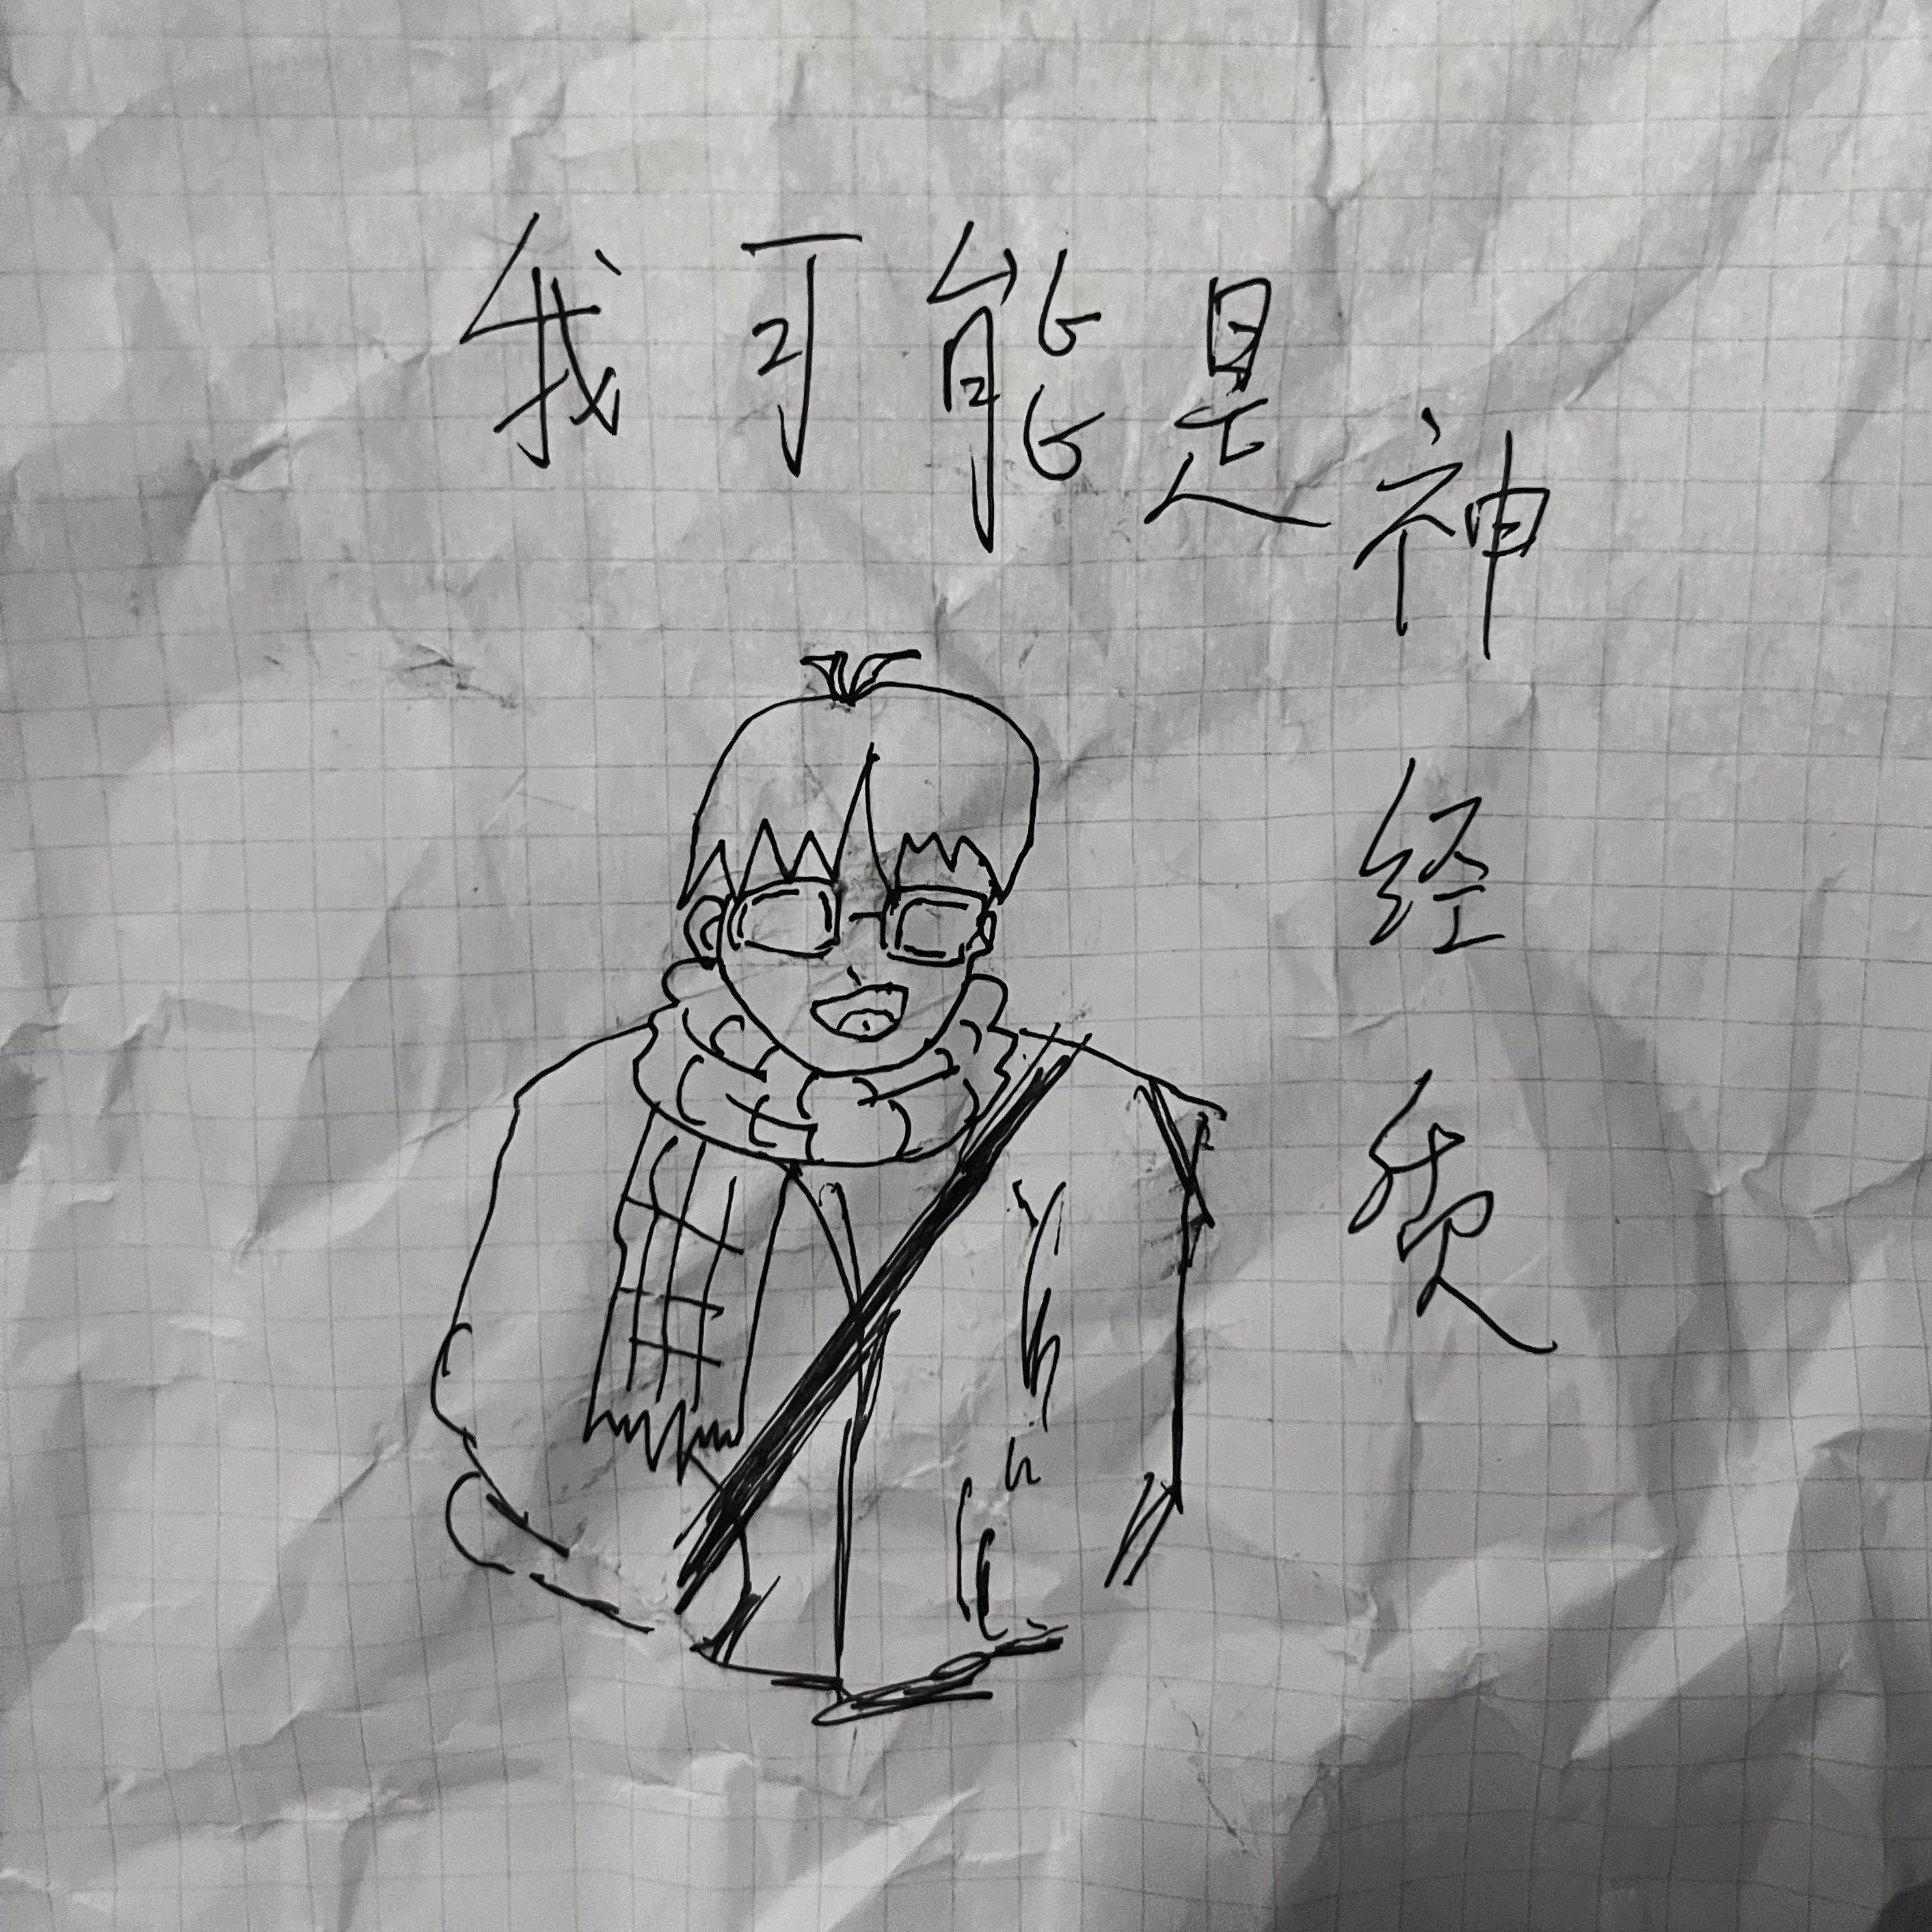 我可能是神经质